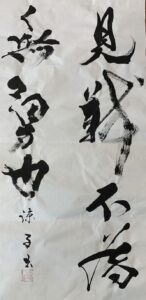 見義不為
無勇也